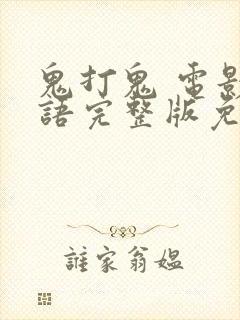 鬼打鬼 電影
語完整版免
誰家翁媼